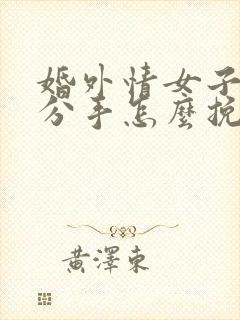 婚外情女子
分手怎麼挽
黃澤東